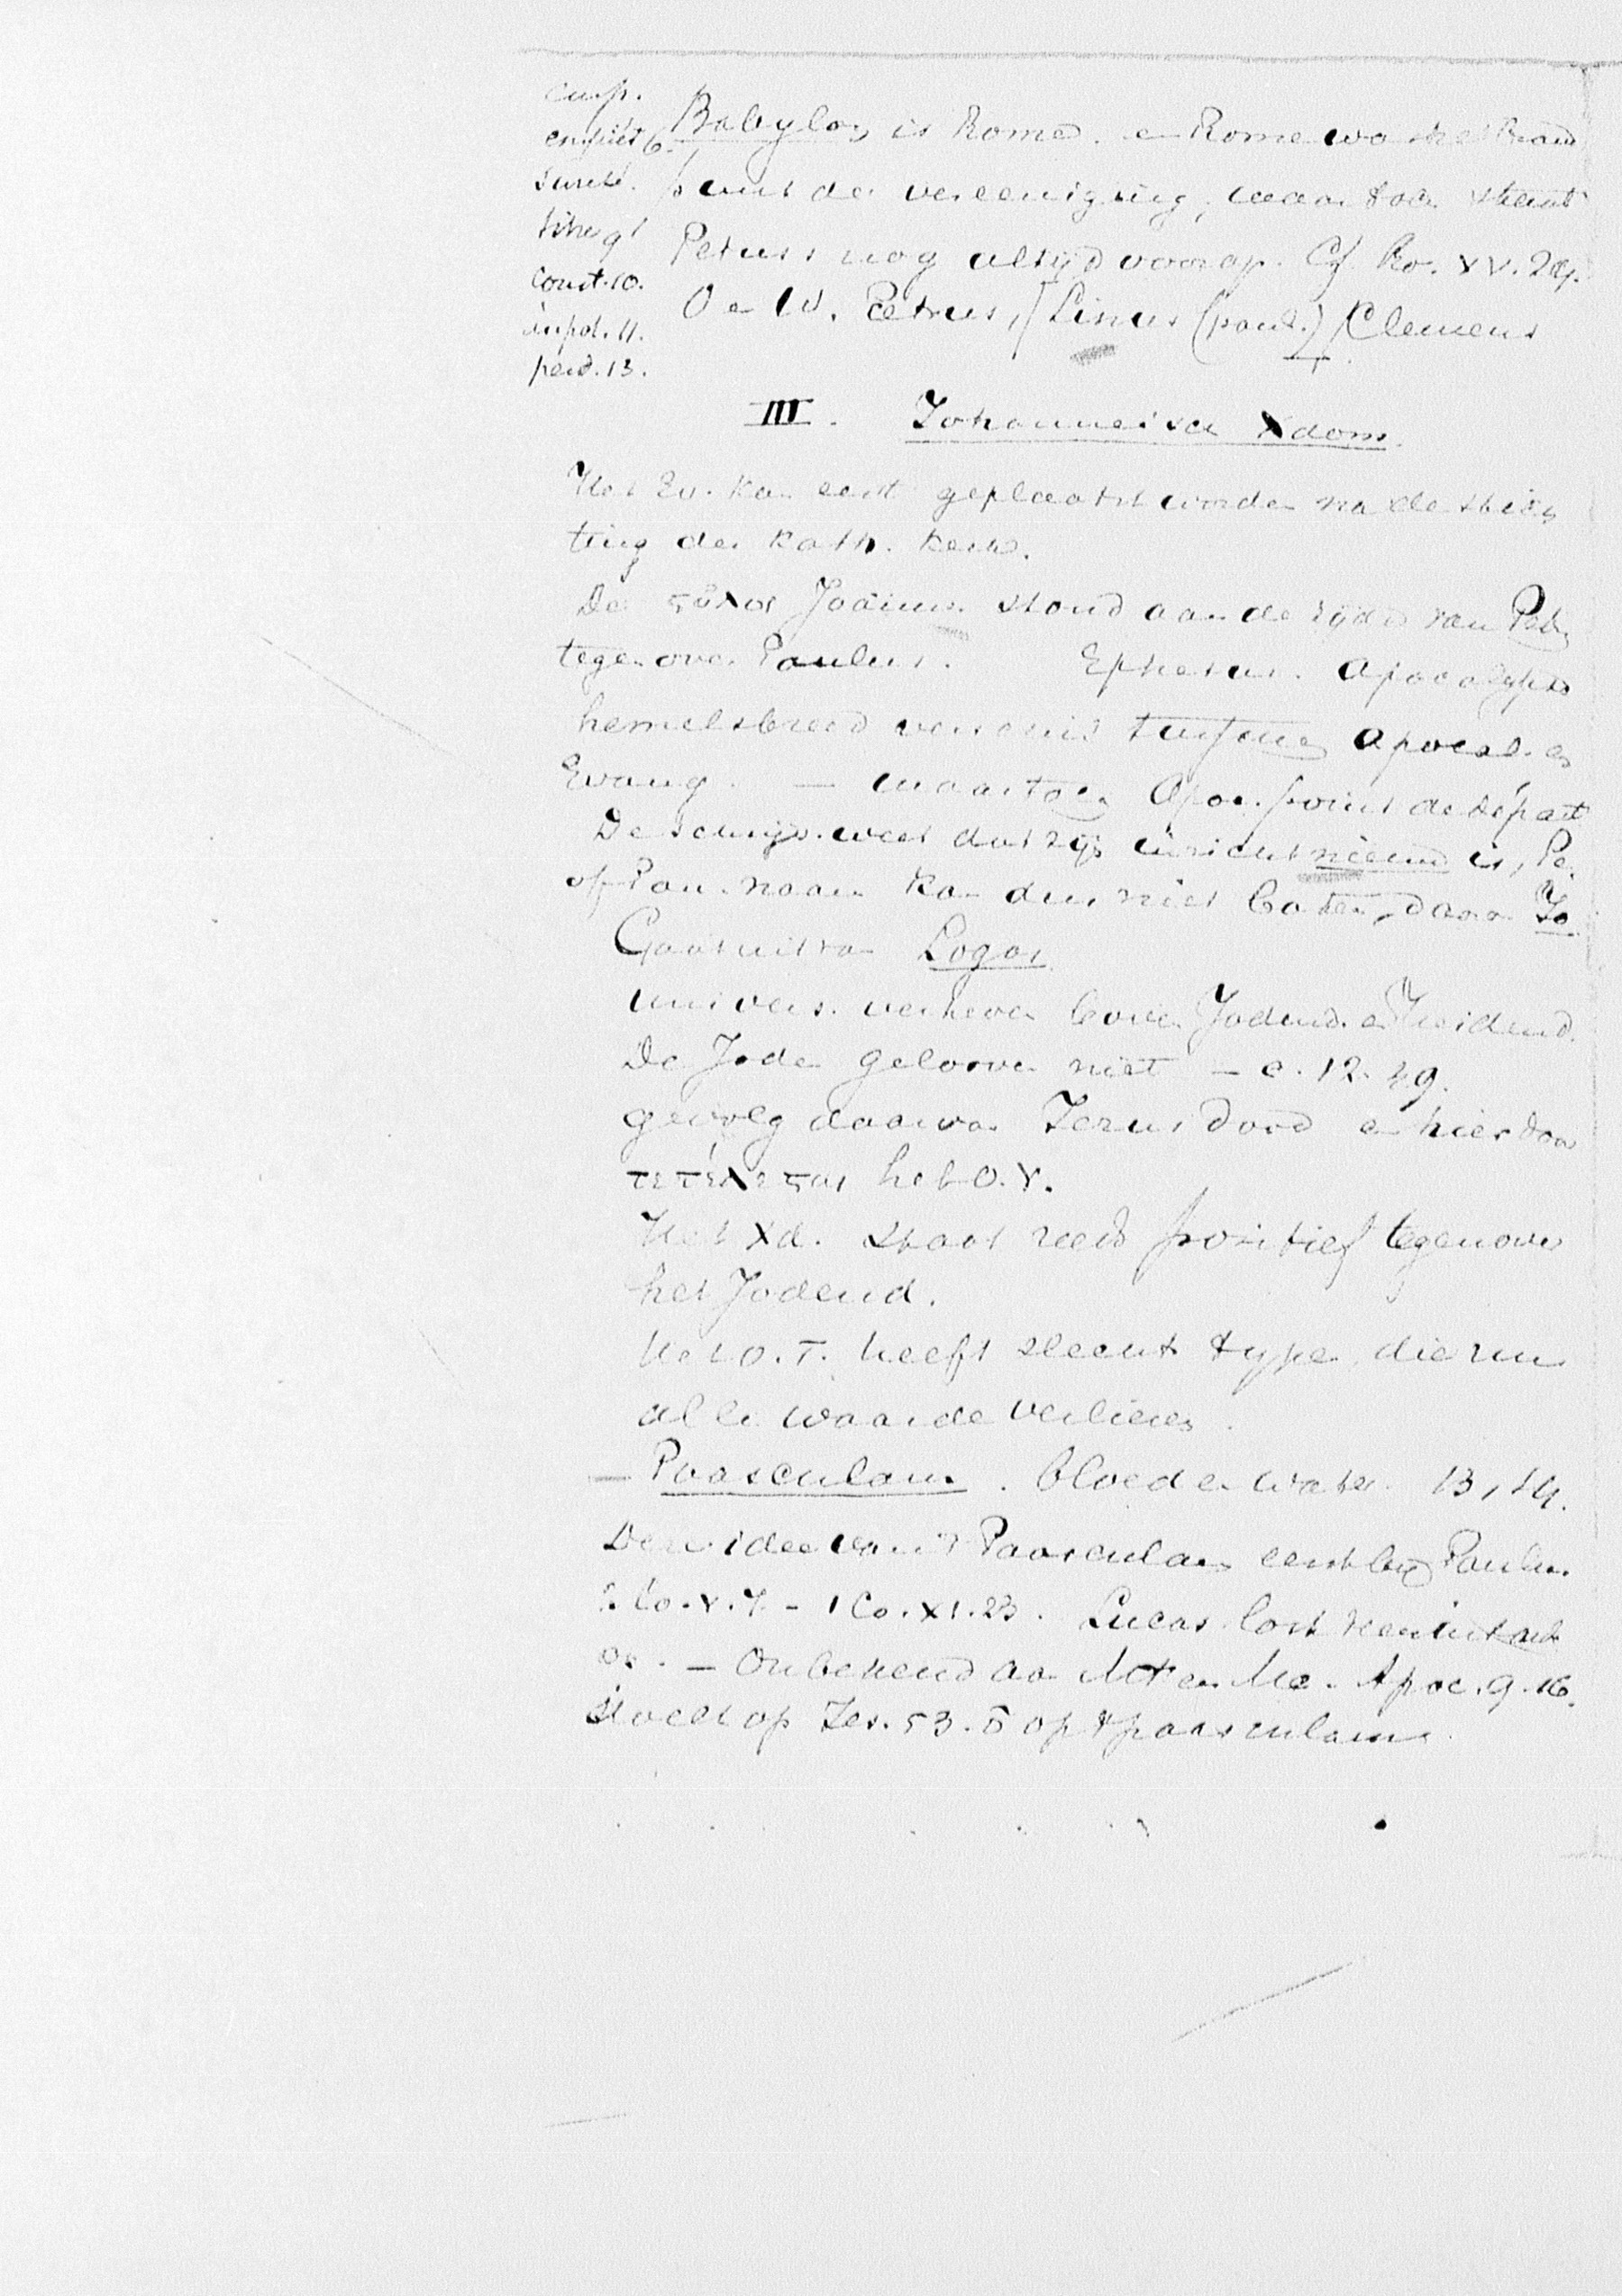 cmp.
enquiet 6.
const. 10.
impd. 11.
perd. 13.
Babylon is Rome. en Rome was het brand
punt der vereeniging, maar toch staat
Petrus nog altijd voorop. Cf. Ro. XV. 24.
O en W. Petrus, / Linus (paul.) / Clemens
III. Johanneisch Xdom.
Het Ev. kan eerst geplaatst worden na de stich
ting der Kath. Kerk.
De Joänn. stond aan de zijde van Petr.
tegenover Paulus. Ephesus. Apocalypse
hemelsbreed verschil tusschen Apocal. en
Evang. — maar toch Apoc. point de départ
De schrijv. weet dat zijn inzicht nieuw is, Pe.
of Pau. naam kan dus niet baten, daarom Jo.
Gaat uit van Logos
univers. verheven boven Jodend. en Heidend.
De Joden gelooven niet — c. 12. 49.
gevolg daarvan Jezus dood en hierdoor
τετέλεσται het O.V.
Het Xd. staat reeds positief tegenover
het Jodend.
Het O.T. heeft slechts typen, die nu
alle waarde verliezen.
— Paaschlam. bloed en water. 13, 14.
Den idee van 't Paaschlam eerst bij Paulus.
1 Co. V. 7 - 1 Co. XI. 23. Lucas
— Onbekend aan Mt en Mc. Apoc. 9. 16.
op Jes. 53. ō op 't paaschlam.